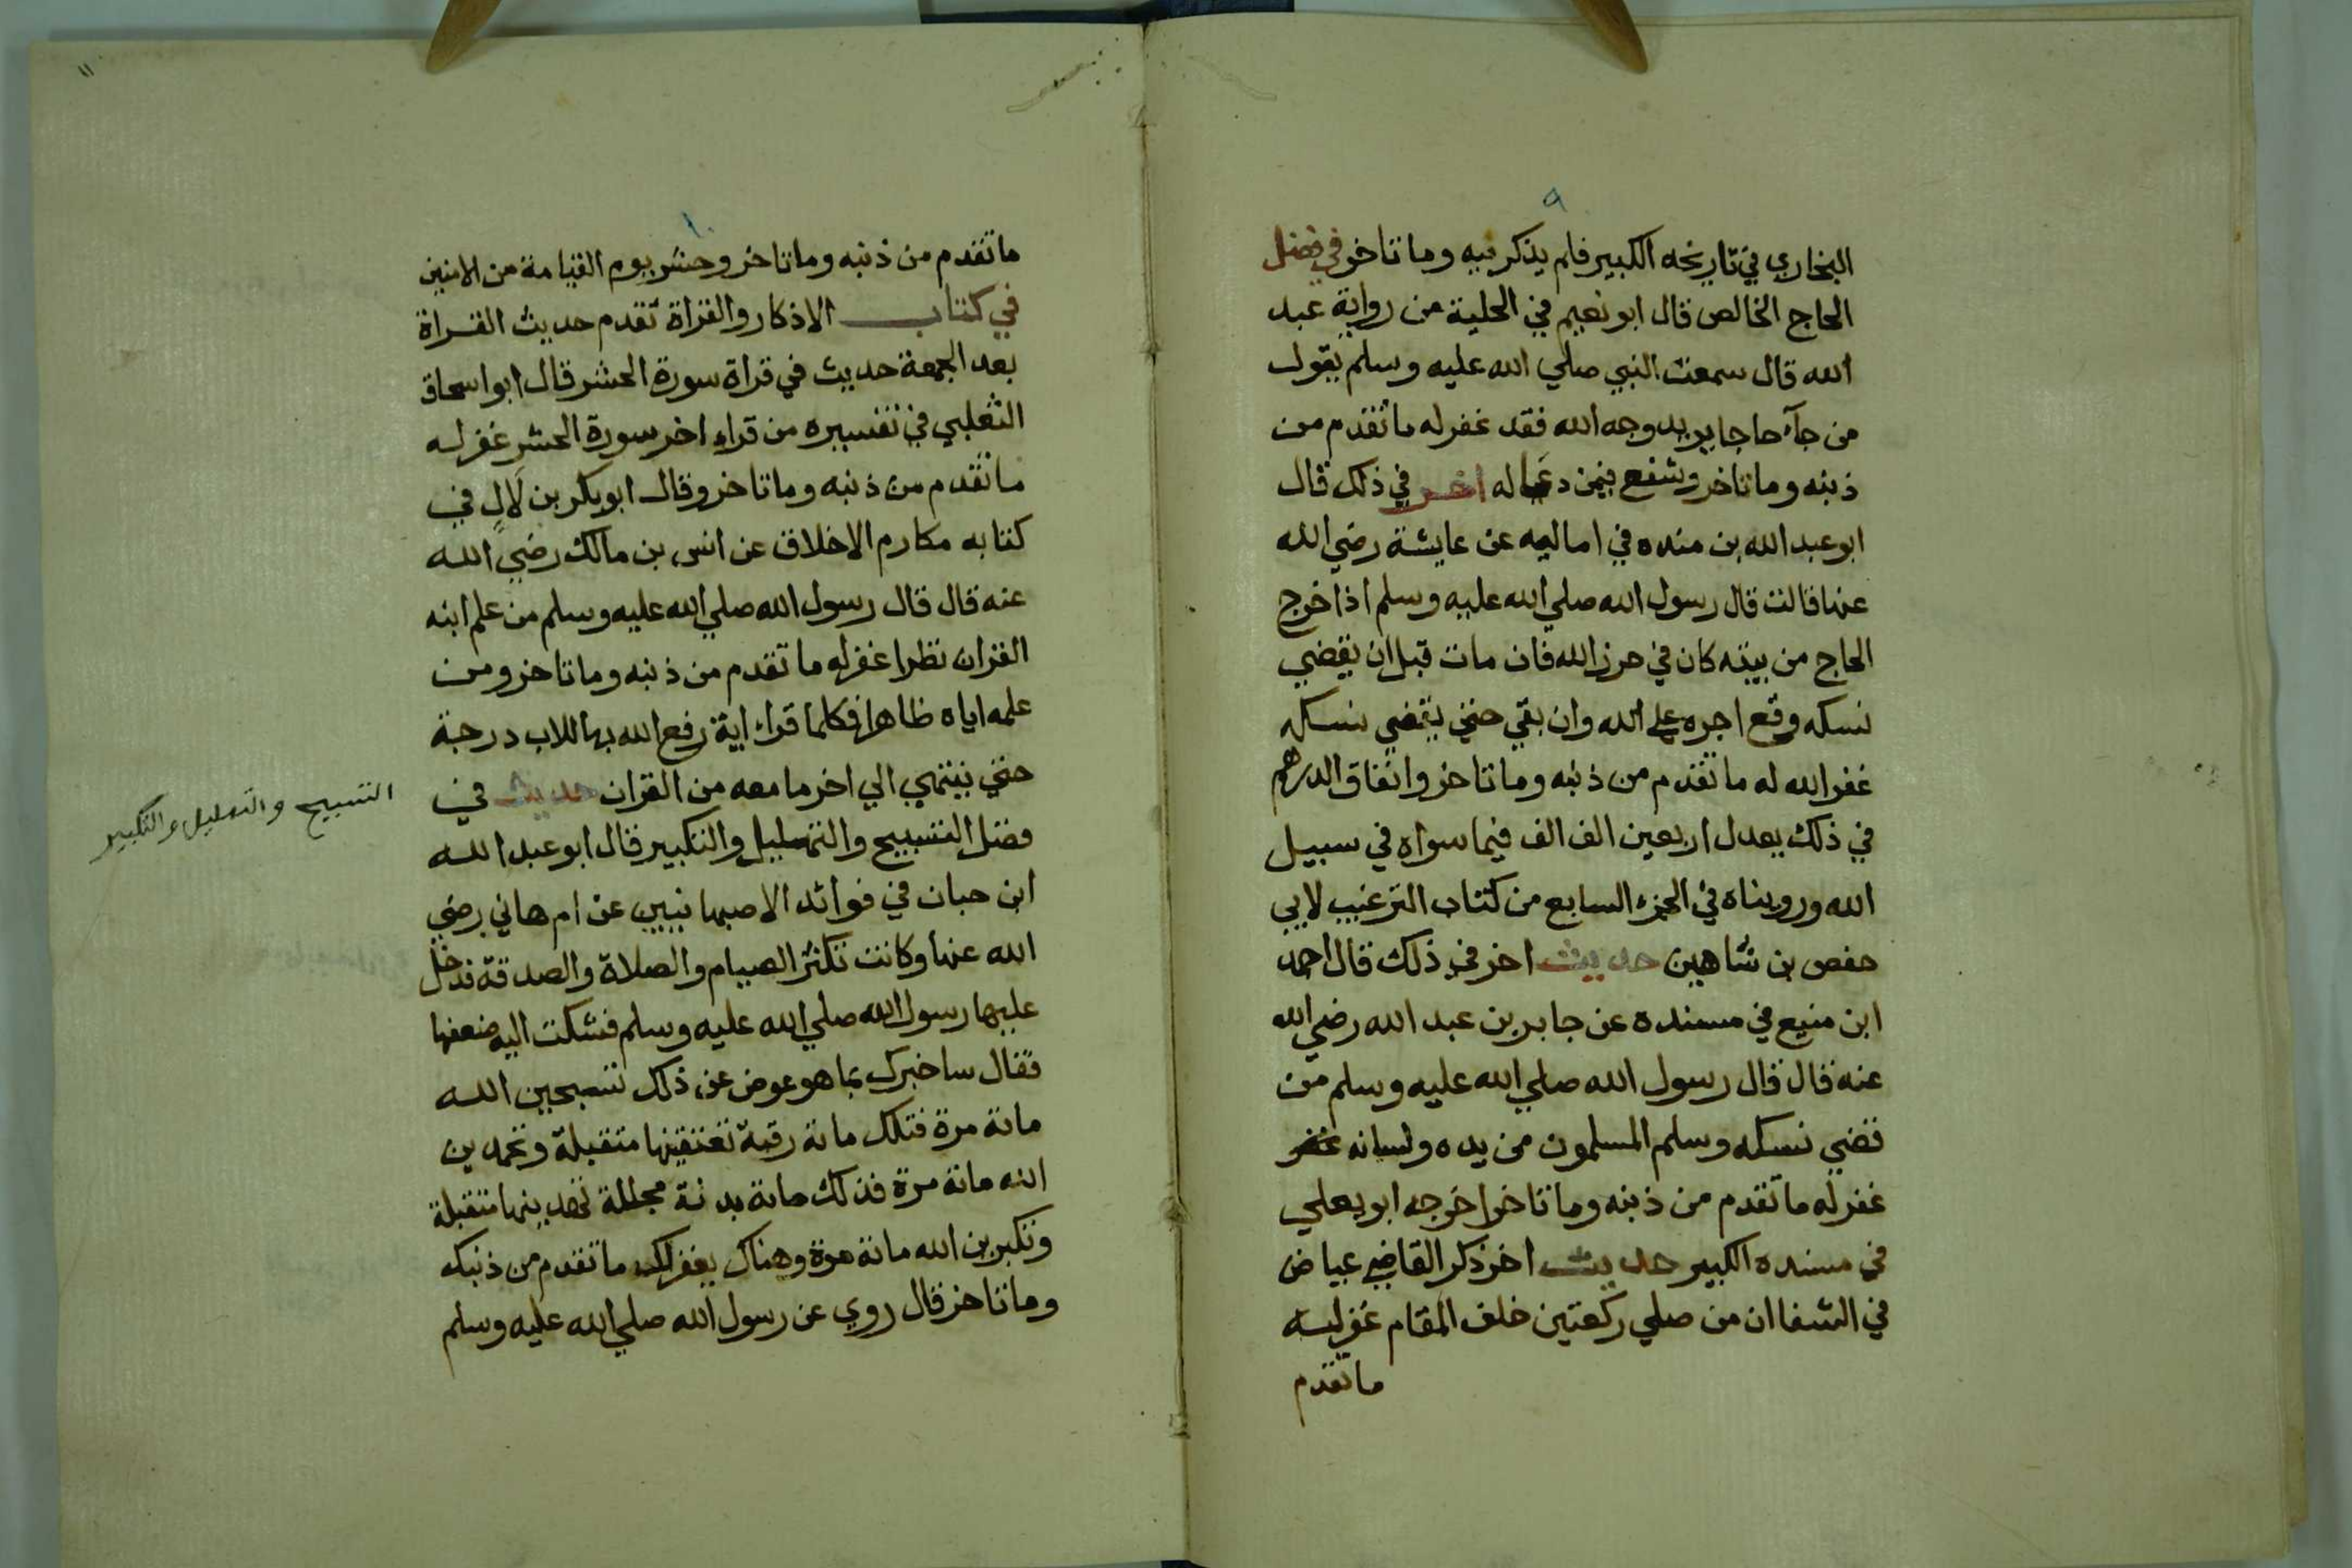 ٩
البخاري في تاريخه الكبير فلم يذكر فيه وما تاخر في فضل
الحاج الخالص قال ابو نعيم في الحلية من رواية عبد
الله قال سمعت النبي صلي الله عليه وسلم يقول
من جآء حاجا يريد وجه الله فقد غفر له ما تقدم من
ذنبه وما تاخر وشفع فيمن دعا له اخر في ذلك قال
ابو عبد الله بن منده في اماليه عن عايشة رضي الله
عنها قالت قال رسول الله صلي الله عليه وسلم اذا خرج
الحاج من بيته كان في حرز الله فان مات قبل ان يقضي
نسكه وقع اجره علي الله وان بقي حتي يقضي نسكه
غفر الله له ما تقدم من ذنبه وما تاخر وانفاق الدرهم
في ذلك يعدل اربعين الف الف فيما سواه في سبيل
الله ورويناه في الجزء السابع من كتاب الترغيب لابي
حفص بن شاهين حديث اخر في ذلك قال احمد
ابن منيع في مسنده عن جابر بن عبد الله رضي الله
عنه قال قال رسول الله صلي الله عليه وسلم من
قضي نسكه وسلم المسلمون من يده ولسانه غفر
غفر له ما تقدم من ذنبه وما تاخر اخرجه ابو يعلي
في مسنده الكبير حديث اخر ذكر القاضي عياض
في الشفا ان من صلي ركعتين خلف المقام غفر له
ما تقدم
١١
١٠
ما تقدم من ذنبه وما تاخر وحشر يوم القيامة من الامنين
في كتاب الاذكار والقراة تقدم حديث القراة
بعد الجمعة حديث في قراة سورة الحشر قال ابو اسحاق
الثعلبي في تفسيره من قراء اخر سورة الحشر غفر له
ما تقدم من ذنبه وما تاخر وقال ابو بكر بن لَالٍ في
كتابه مكارم الاخلاق عن انس بن مالك رضي الله
عنه قال قال رسول الله صلي الله عليه وسلم من علم ابنه
القران نظرا غفر له ما تقدم من ذنبه وما تاخر ومن
علمه اياه ظاهرا فكلما قراء اية رفع الله بها للاب درجة
حتي ينتهي الي اخر ما معه من القران حديث في
فضل التسبيح والتهليل والتكبير قال ابو عبد الله
ابن حبان في فوائد الاصبهانيين عن ام هاني رضي
الله عنها وكانت تكثر الصيام والصلاة والصدقة فدخل
عليها رسول الله صلي الله عليه وسلم فشكت اليه ضعفها
فقال ساخبرك بما هو عوض عن ذلك تسبحين الله
مائة مرة فتلك مائة رقبة تعتقينها متقبلة وتحمدين
الله مائة مرة فذلك مائة بدنة مجللة تهدينها متقبلة
وتكبرين الله مائة مرة وهناك يغفر لك ما تقدم من ذنبك
وما تاخر قال روي عن رسول الله صلي الله عليه وسلم
التسبيح والتهليل والتكبير